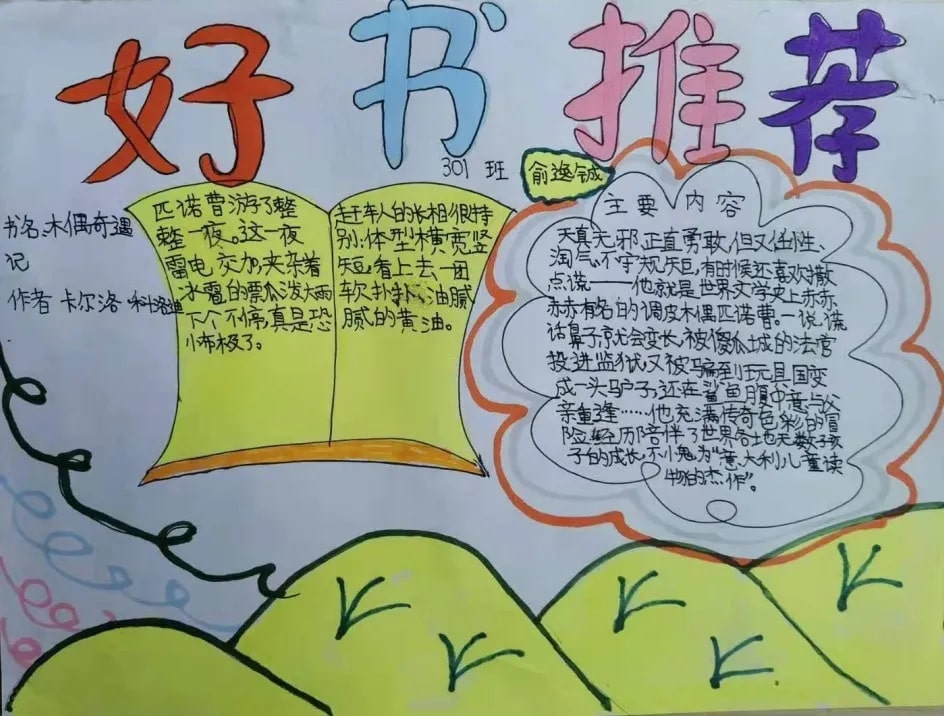 好书推荐
301 班
俞逸铖
书名:木偶奇遇
记
作者 卡尔洛·科洛迪
匹诺曹游了整
整一夜。这一夜
雷电交加,夹杂着
冰雹的瓢瓜泼大雨
下个不停,真是恐
怖极了。
赶车人的长相很特
别:体型横宽竖
短,看上去一团
软扑扑、油腻
腻的黄油。
主要内容
天真无邪、正直勇敢,但又任性、
淘气、不守规矩,有时候还喜欢撒
点谎——他就是世界文学史上赤赤
赤赤有名的调皮木偶匹诺曹。一说谎
话鼻子就会变长,被傻瓜城的法官
投进监狱,又被骗到玩具国变
成一头驴子,还在鲨鱼腹中意与父
亲重逢……他充满传奇色彩的冒
险经历陪伴了世界各地无数孩
子的成长,不小鬼为“意大利儿童读
物的杰作”。